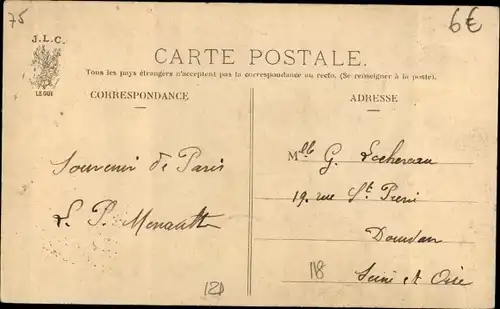 75
6€
J.L.C.
LE GUI
CARTE POSTALE.
Tous les pays étrangers n'acceptent pas la correspondance au recto. (Se renseigner à la poste).
CORRESPONDANCE
ADRESSE
Souvenir de Paris
Mlle G. Lochereau
19, rue St Pierre
Dourdan
Seine et Oise
121
118